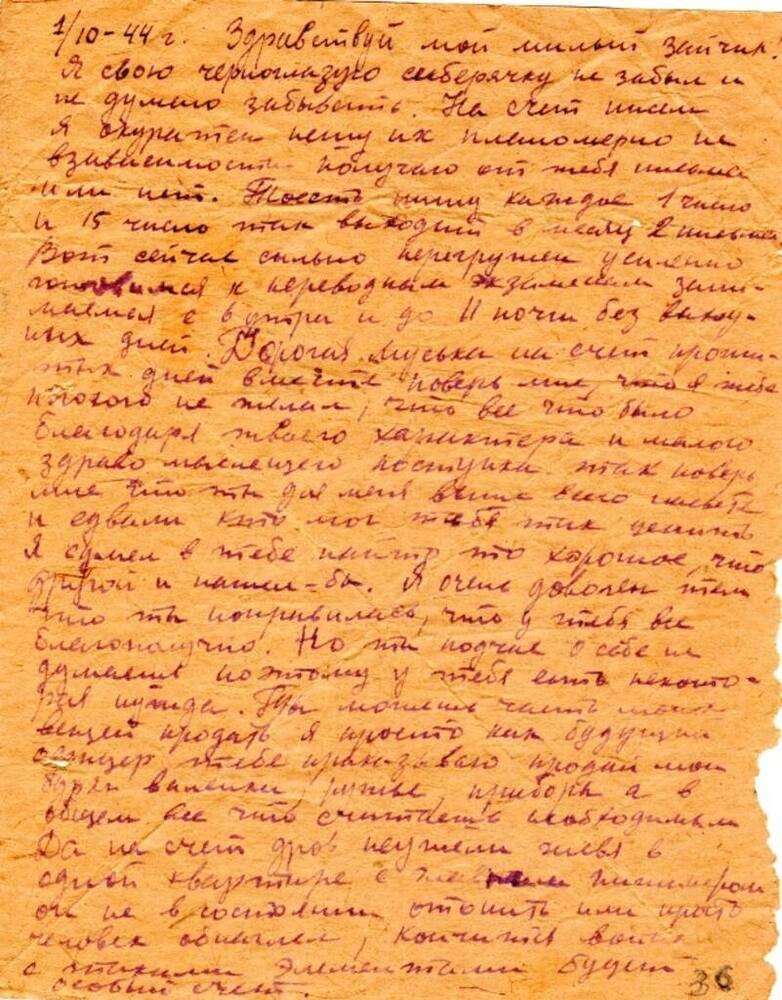 1/10-44 г. Здравствуй мой милый зайчик!
Я свою черноглазую сиберячку не забыл и
не думаю забывать. На счет писем
Я акуратен пишу их планомерно не
взависимости получаю от тебя письма
или нет. Тоесть пишу каждое 1 число
и 15 число так выходит в месяц 2 письма
Вот сейчас сильно перегружен усиленно
готовимся к переводным экзаменам зани-
маемся с в утра и до 11 ночи без выход-
ных дней. Дорогая Муська на счет прожи-
тых дней вместе поверь мне, что я тебе
плохого не желал, что все что было
благодаря твоего характера и малого
здраво мыслещего поступка так поверь
мне что ты для меня выше всего
и едвали кто мог тебя так ценить
Я сумел в тебе найти то хорошое, что
другой и нашел-бы. Я очень доволен тем
что ты поправилась, что у тебя все
благополучно. Но ты подчас о себе не
думаешь поэтому у тебя есть некото-
рая нужда. Ты можешь часть моих
вещей продать я просто как будущий
офицер тебе приказываю продай мои
валенки, ружье, приборы а в
общем все что считаешь необходимым
Да на счет дров неужели живя в
одной квартире с инженером
он не в состоянии отопить или просто
человек обнаглел, кончится война
с такими элементами будет
особый счет.
36